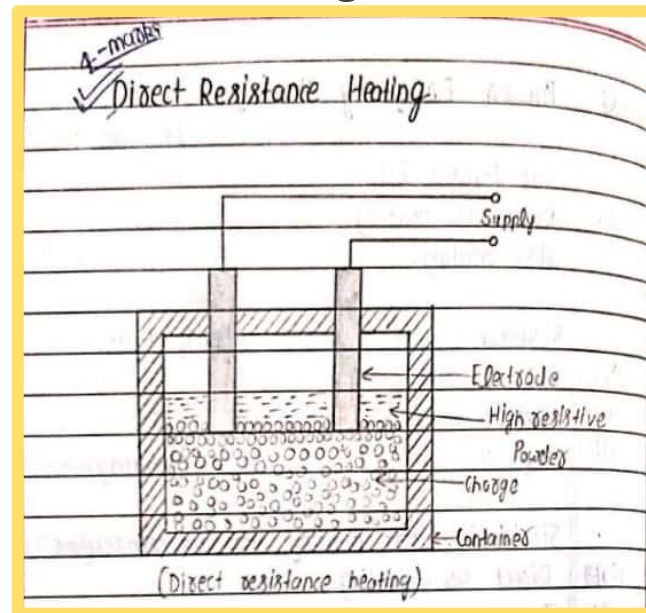 4-marks
Direct Resistance Heating
Supply
Electrode
High resistive
Powder
Charge
Container
(Direct resistance heating)